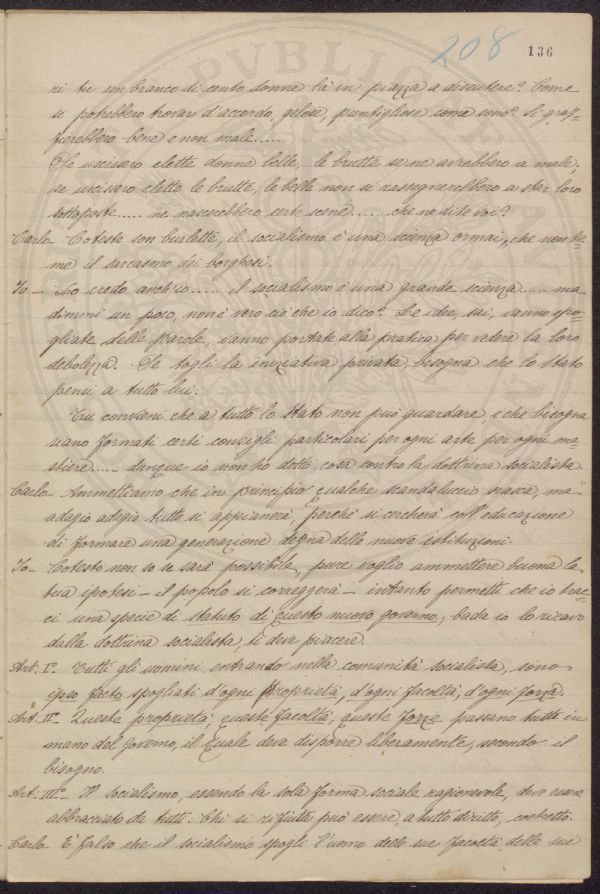 208 136
ri tu un branco di cento donne là in piazza a discutere? Come
si potrebbero trovar d'accordo, gelose, puntigliose come sono? Si graf=
fierebbero bene e non male.....
Se uscissero elette donne belle, le brutte se ne avrebbero a male,
se uscissero elette le brutte, le belle non si rassegnerebbero a star loro
sottoposte..... ne nascerebbero certe scene..... che ne dite voi?
Carlo Coteste son burlette, il socialismo è una scienza ormai, che non te=
me il sarcasmo dei borghesi.
Io - Lo credo anch'io..... il socialismo è una grande scienza..... ma
dimmi un poco, non è vero ciò che io dico? Le idee, sai, vanno spo=
gliate delle parole, vanno portate alla pratica per vedere la loro
debolezza. Se togli la iniziativa privata, bisogna che lo stato
pensi a tutto lui.
Tu convieni che a tutto lo Stato non può guardare, e che bisogna
siano formati certi consigli particolari per ogni arte per ogni me=
stiere..... dunque io non ho detto, cosa contro la dottrina socialista
Carlo Ammettiamo che in principio qualche scandaluccio nasca, ma
adagio adagio tutto si appianerà, perché si cercherà coll'educazione
di formare una generazione degna delle nuove istituzioni.
Io - Cotesto non so se sarà possibile, pure voglio ammettere buona la
tua ipotesi - il popolo si correggerà - intanto permetti che io trac=
ci una specie di statuto di questo nuovo governo; bada io lo ricavo
dalla dottrina socialista, ti deve piacere.
Art. I° Tutti gli uomini entrando nella comunità socialista, sono
ipso facto spogliati d'ogni proprietà, d'ogni facoltà, d'ogni forza.
Art. II° Queste proprietà, queste facoltà, queste forze passano tutte in
mano del governo, il quale deve disporre liberamente, secondo il
bisogno.
Art. III° Il socialismo, essendo la sola forma sociale ragionevole, deve essere
abbracciato da tutti. Chi si rifiuta può essere, a tutto diritto, costretto.
Carlo È falso che il socialismo spogli l'uomo delle sue facoltà, delle sue